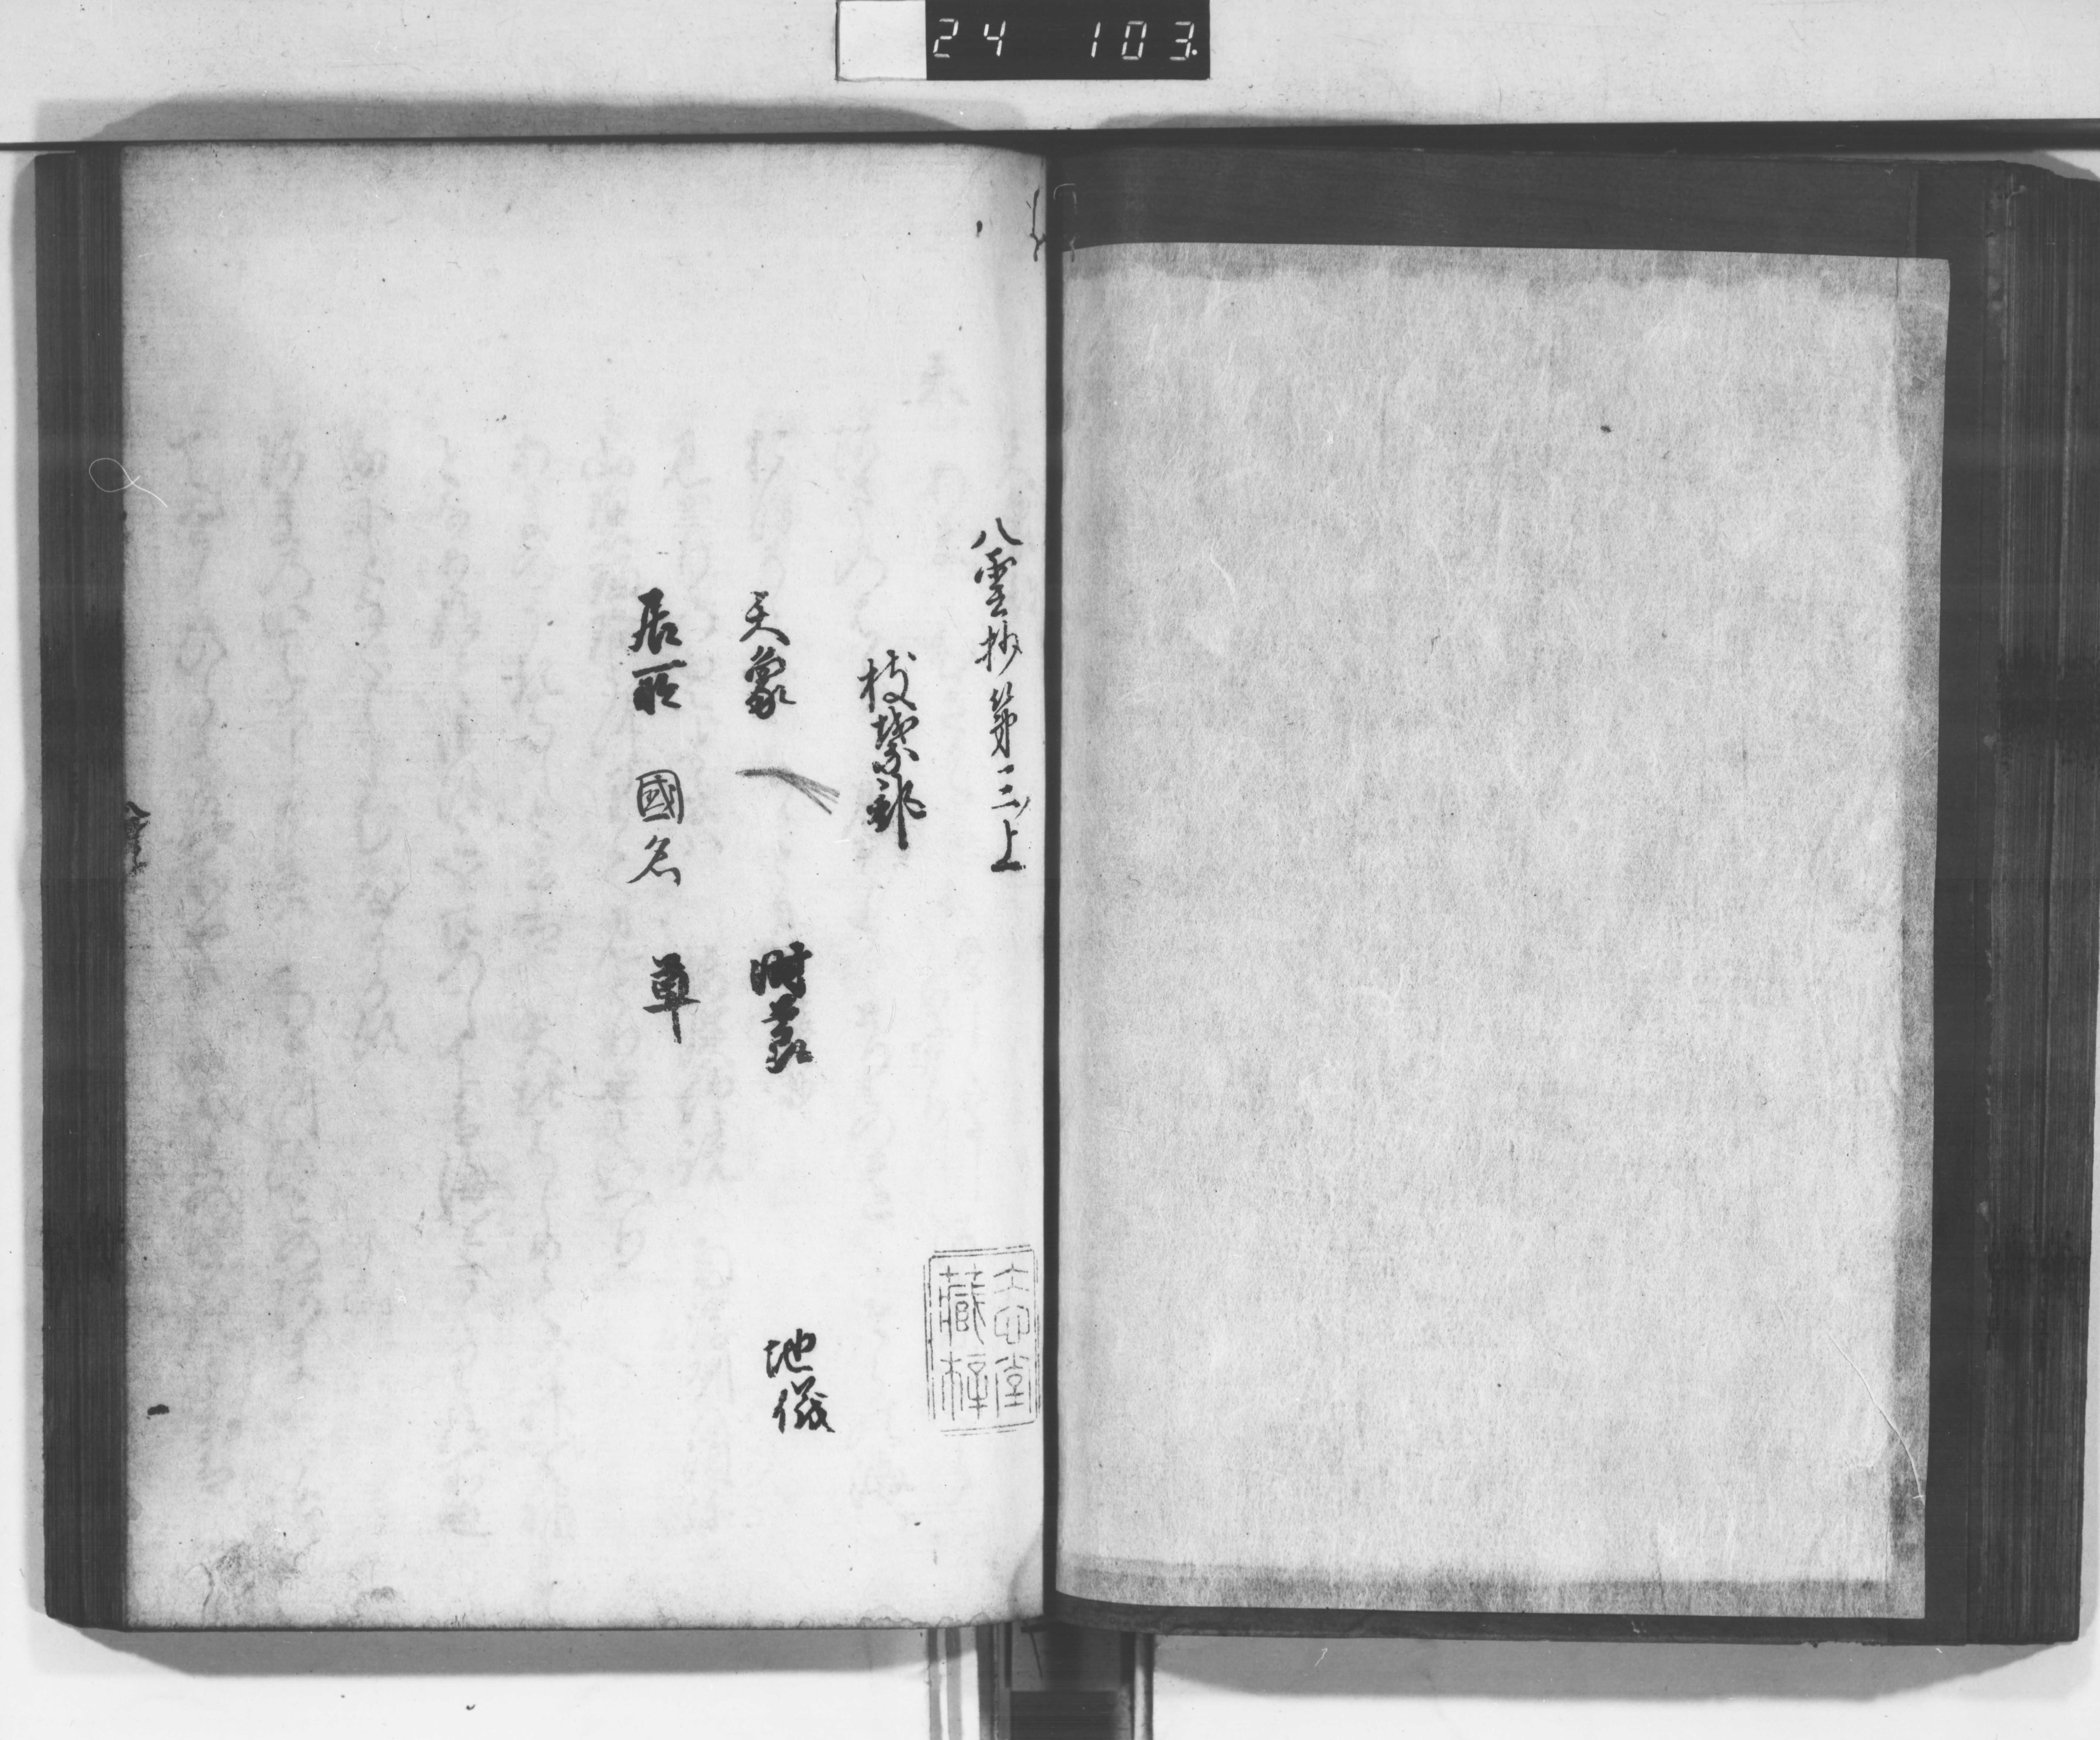 24 103.
八雲抄第三上
枝葉部
天象 時節 地儀
居所 國名 草
志堂
藏梓